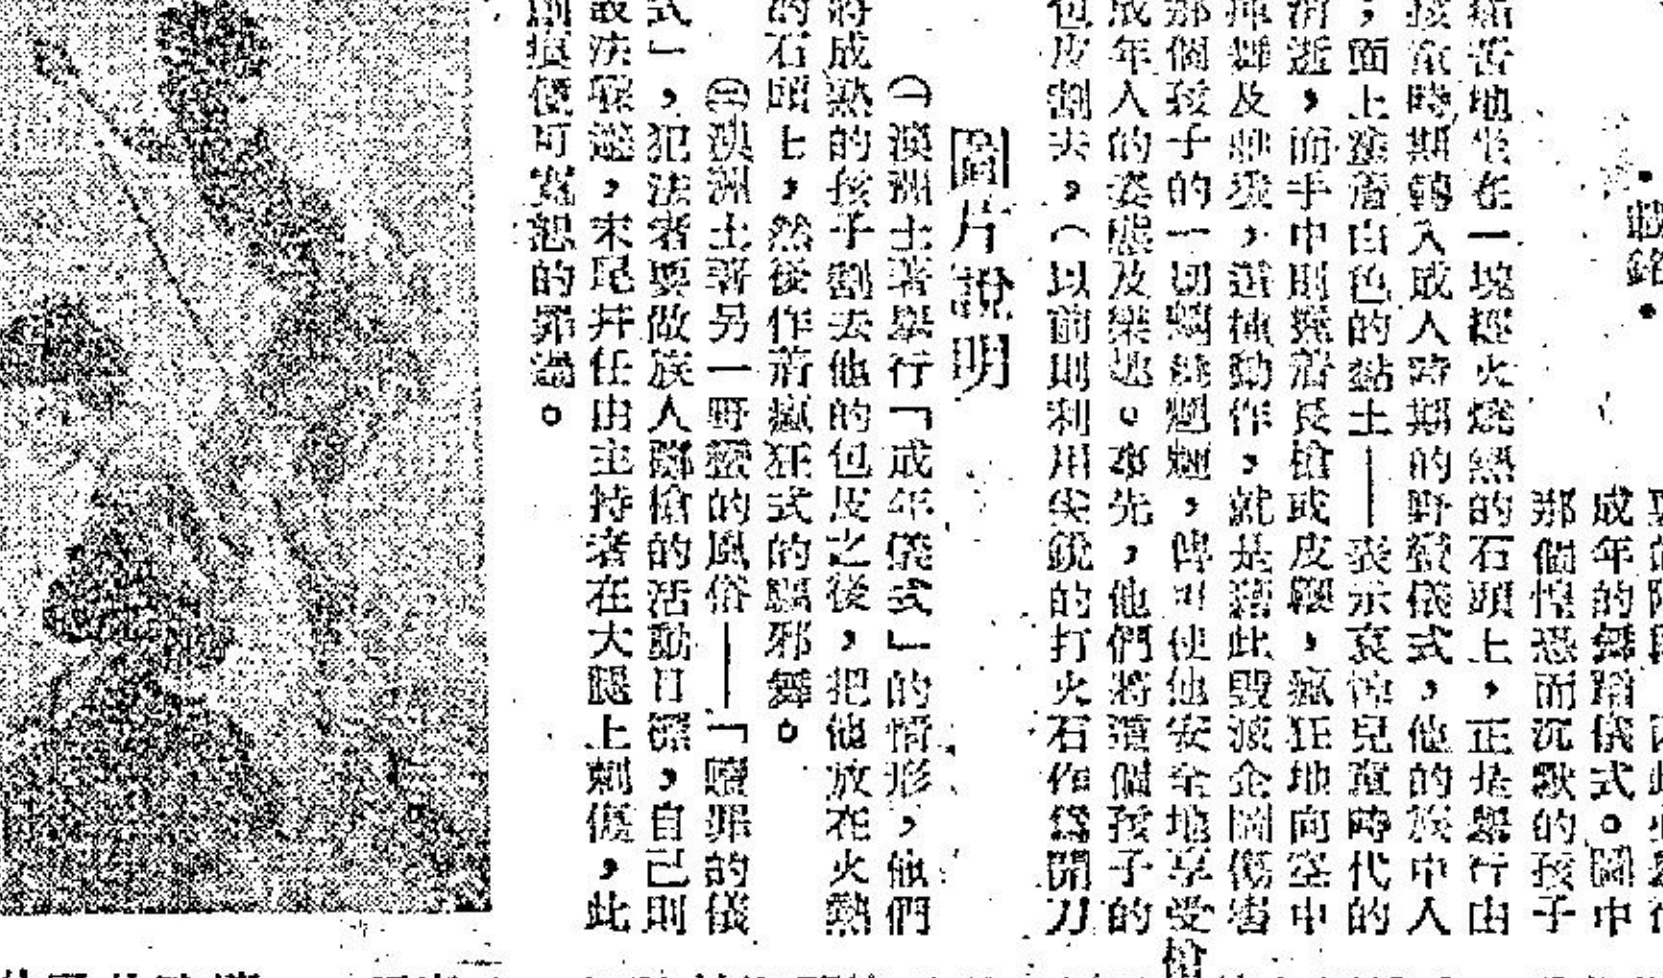 •戴銘•
成年的舞蹈儀式。圖中
那個惶惑而沉默的孩子
苦地坐在一塊經火燒熱的石頭上，正是舉行由
孩童時期轉入成人時期的野蠻儀式，他的族中人
，面上塗着白色的黏土——表示哀悼兒童時代的
消逝，而手中則揮着長槍或皮鞭，瘋狂地向空中
揮舞及，這種動作，就是藉此毀滅企圖傷害
那個孩子的一切魍魎，俾可使他安全地享受
成年人的姿態及樂趣。事先，他們將這個孩子的
包皮割去，（以前則利用尖銳的打火石作為開刀
圖片說明
㈠澳洲土著舉行「成年儀式」的情形，他們
將成熟的孩子割去他的包皮之後，把他放在火熱
的石頭上，然後作着瘋狂式的驅邪舞。
㈡澳洲土著另一野蠻的風俗——「贖罪的儀
式」，犯法者要做族人擲槍的活動目標，自己則
設法躲避，末尾并任由主持者在大腿上刺傷，此
創痕便可寬恕的罪過。